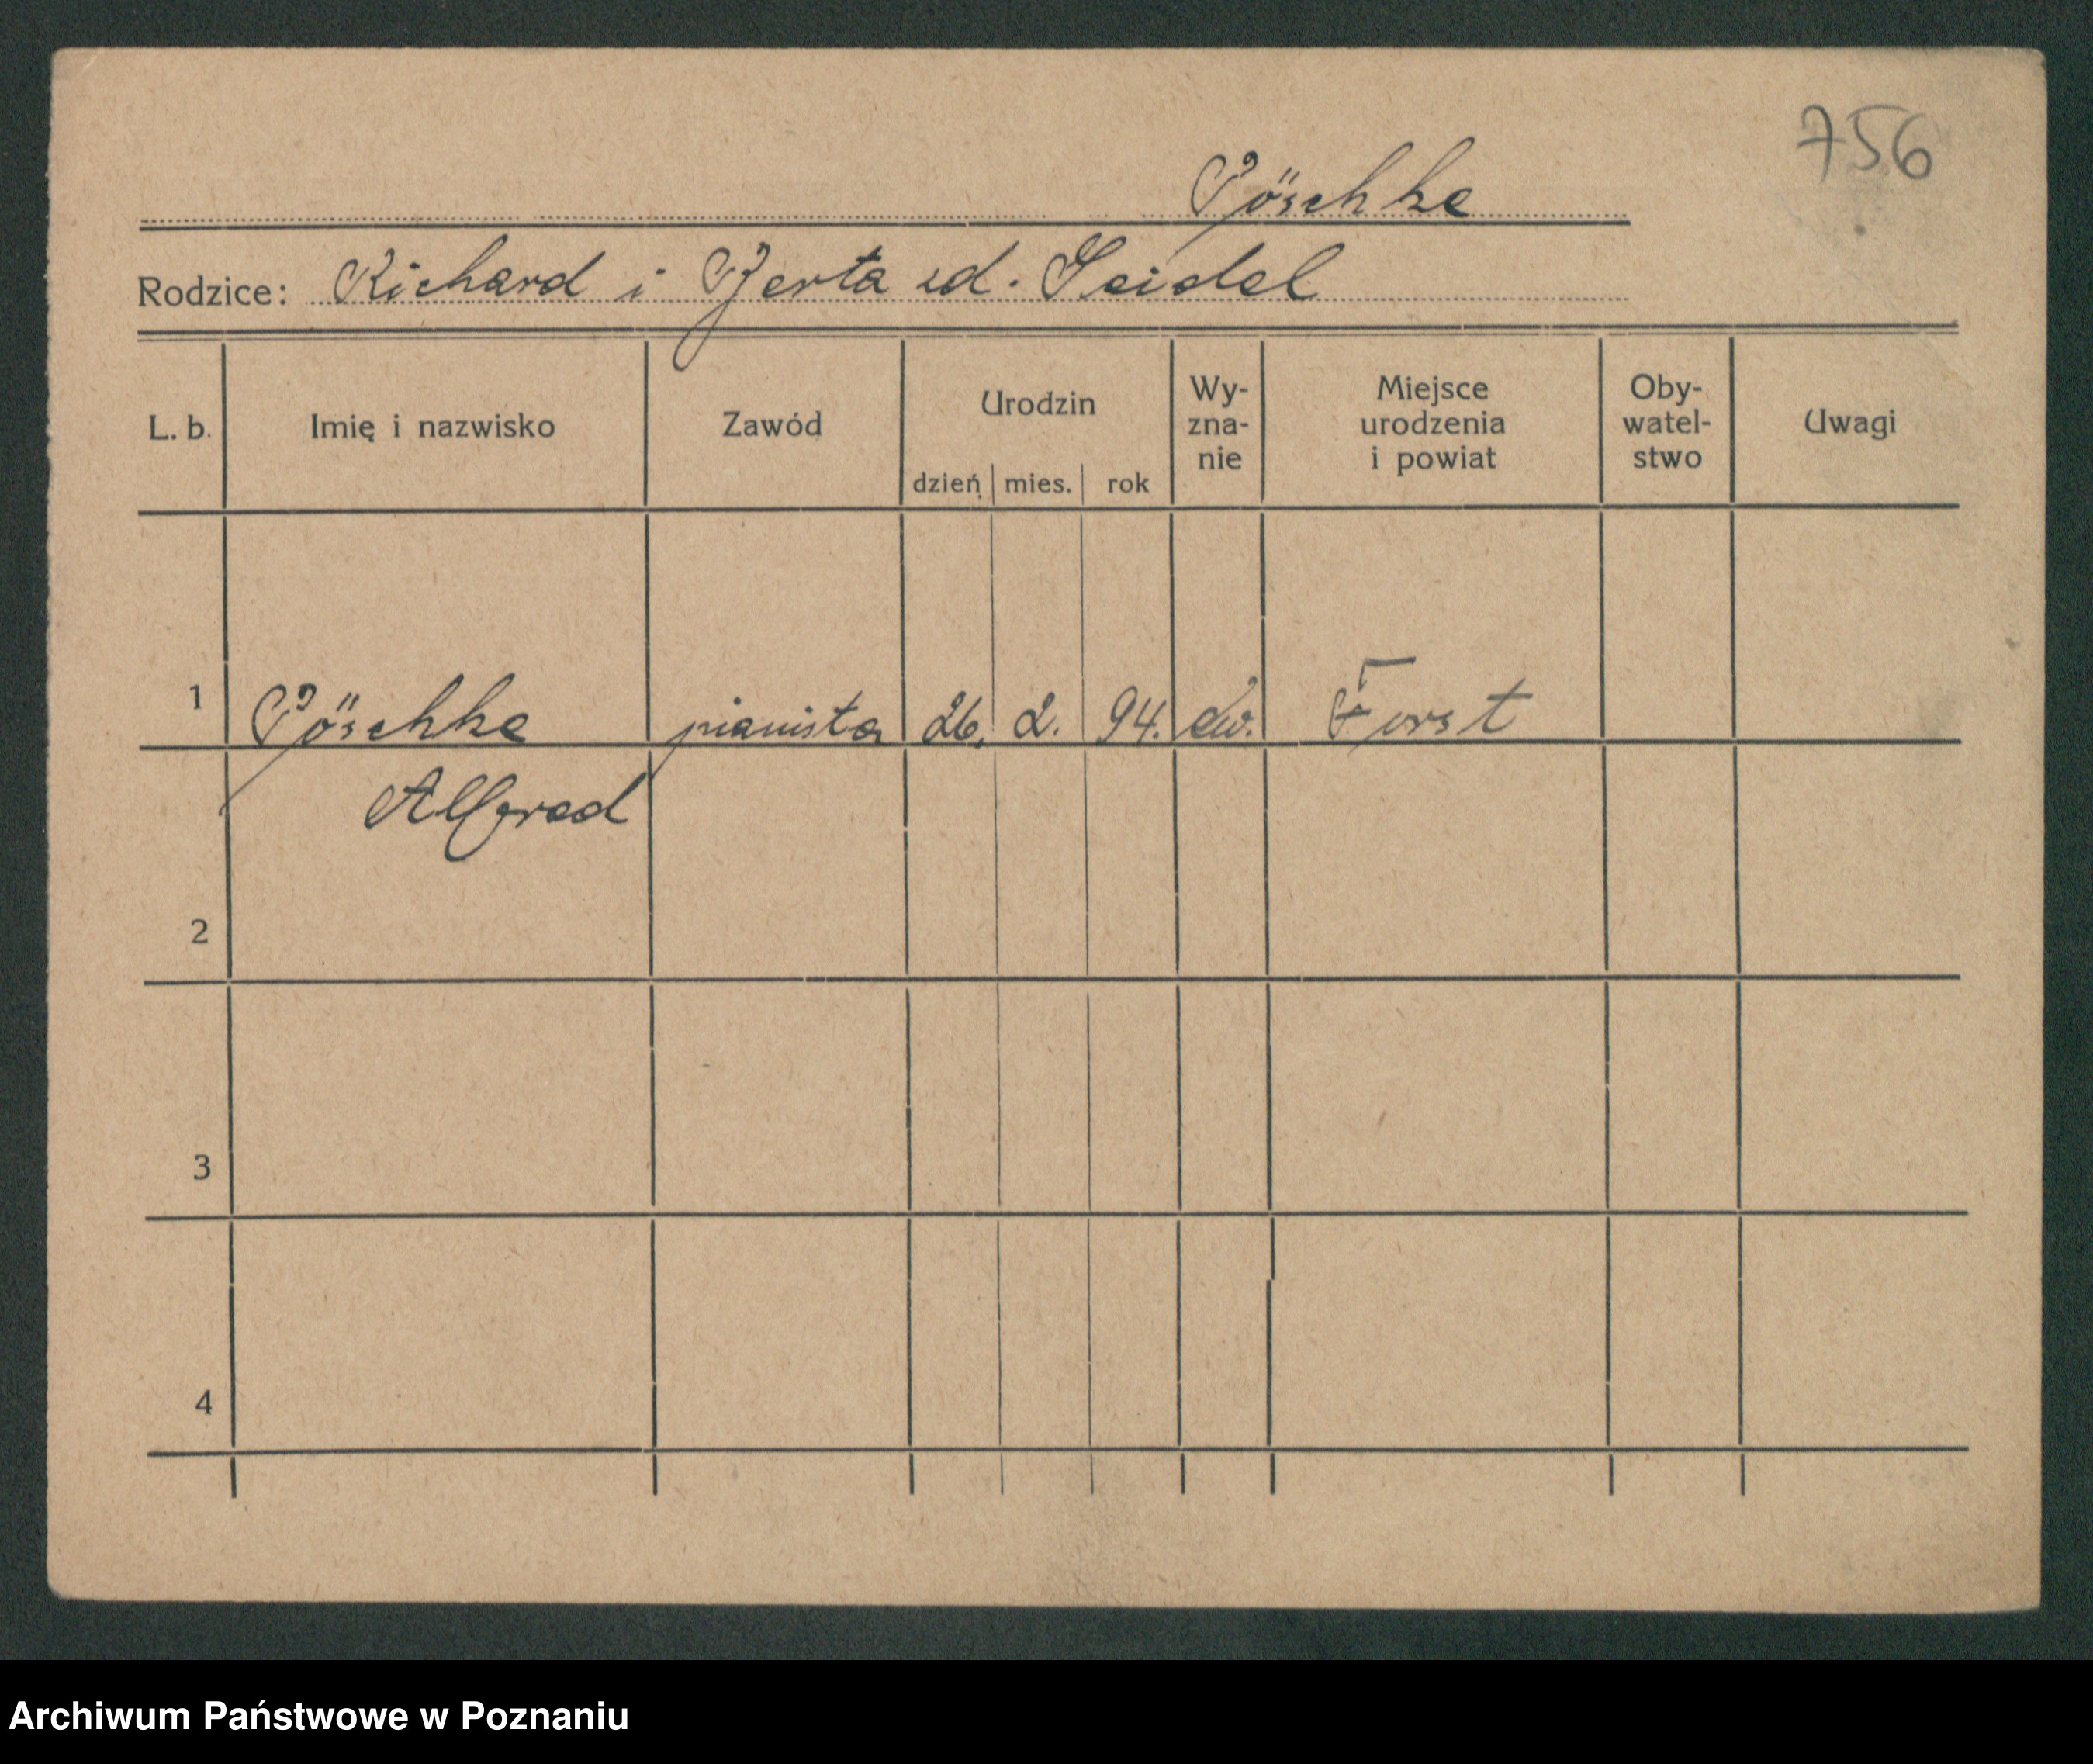 756
Pöschke
Rodzice: Richard i Berta zd. Seidel
L. b. Imię i nazwisko Zawód Urodzin dzień mies. rok Wy-zna-nie Miejsce urodzenia i powiat Oby-watel-stwo Uwagi
1 Pöschke pianista 26. 2. 94. ew. Forst
Alfred
2
3
4
Archiwum Państwowe w Poznaniu